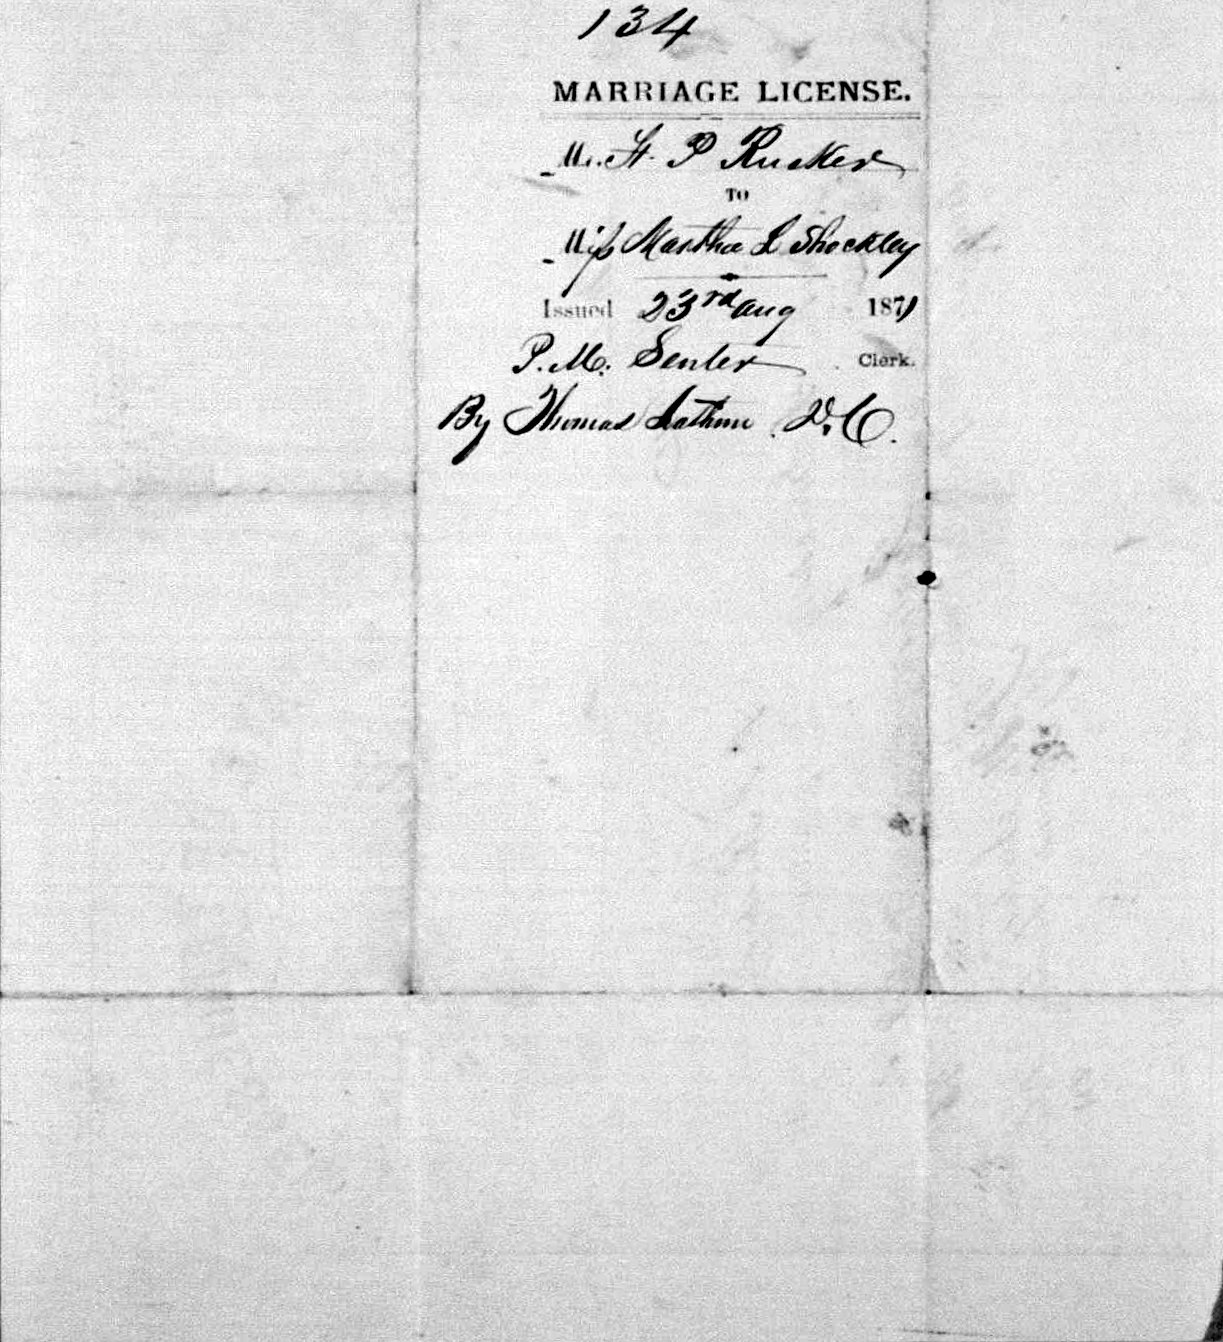 134
MARRIAGE LICENSE.
Mr. H. P Rucker
TO
Miss Martha L Shockley
Issued 23rd Aug 1871
P. M. Senter Clerk.
By Thomas D. C.